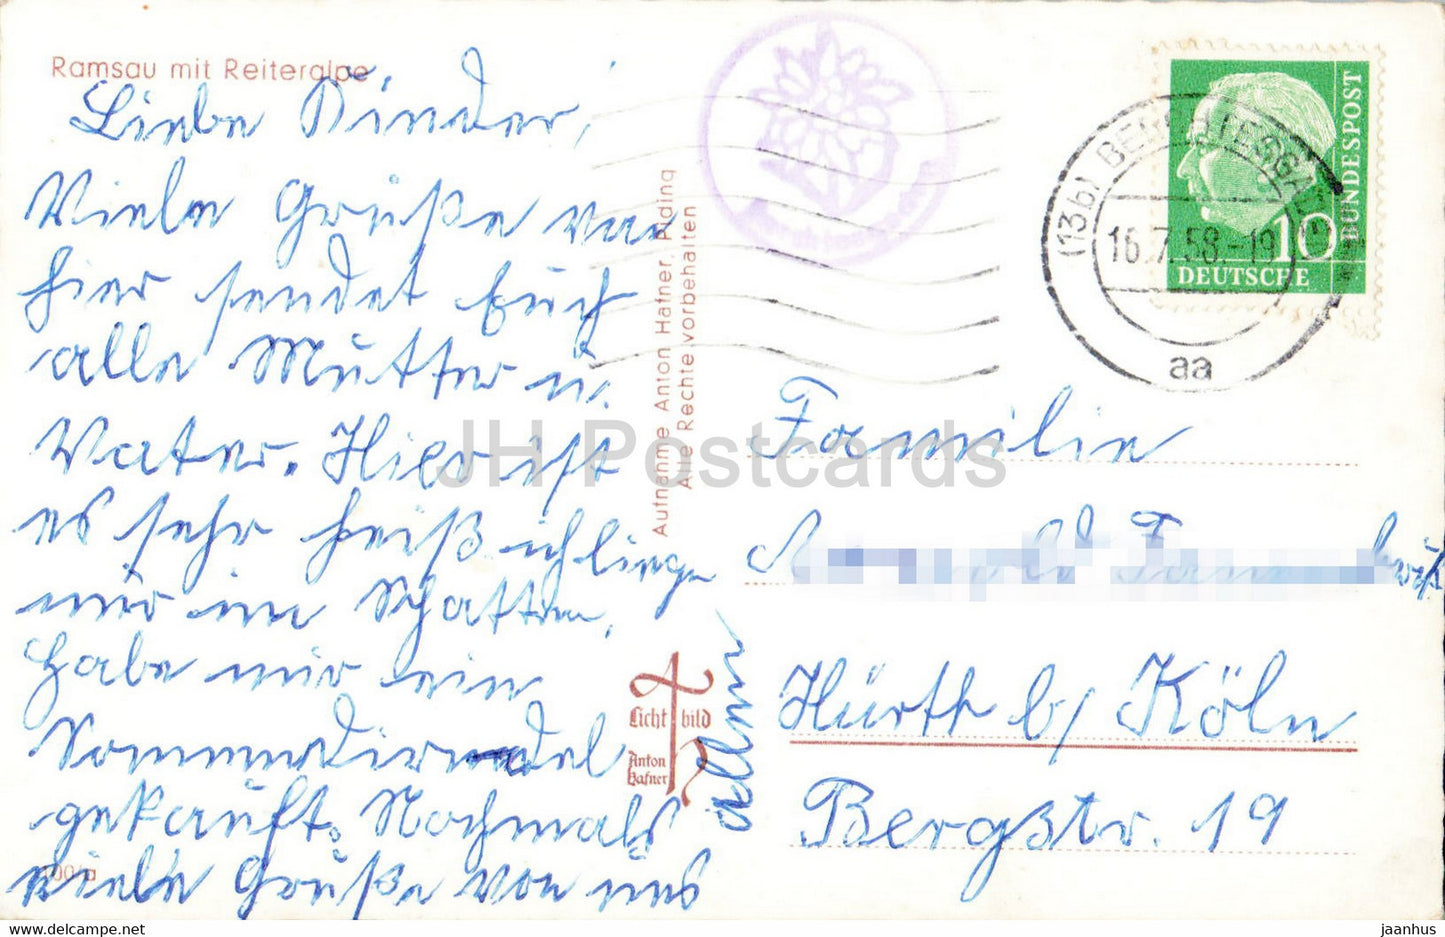 Ramsau mit Reiteralpe
Liebe Kinder,
Viele Grüße von
hier sendet Euch
alle Mutter u.
Vater. Hier ist
es sehr heiß ich liege
nur im Schatten,
habe mir ein
Sommerdirndel
gekauft. Nochmals
viele Grüße von uns
allen
Aufnahme Anton Hafner, Piding
Alle Rechte vorbehalten
Licht bild
Anton
Hafner
(13b) BERCHTESGADEN
16.7.58.-19
aa
10
DEUTSCHE
BUNDESPOST
Familie
Hürth b/ Köln
Bergstr. 19
JH Postcards
www.hippostcard.com
jaanhus